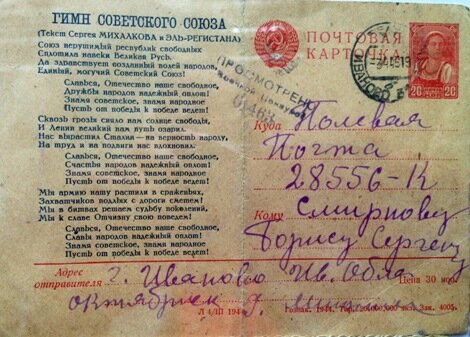 ГИМН СОВЕТСКОГО СОЮЗА
(Текст Сергея МИХАЛКОВА и ЭЛЬ-РЕГИСТАНА)
Союз нерушимый республик свободных
Сплотила навеки Великая Русь.
Да здравствует созданный волей народов,
Единый, могучий Советский Союз!
Славься, Отечество наше свободное,
Дружбы народов надежный оплот!
Знамя советское, знамя народное
Пусть от победы к победе ведет!
Сквозь грозы сияло нам солнце свободы,
И Ленин великий нам путь озарил.
Нас вырастил Сталин — на верность народу,
На труд и на подвиги нас вдохновил.
Славься, Отечество наше свободное,
Счастья народов надежный оплот!
Знамя советское, знамя народное
Пусть от победы к победе ведет!
Мы армию нашу растили в сраженьях,
Захватчиков подлых с дороги сметем!
Мы в битвах решаем судьбу поколений,
Мы к славе Отчизну свою поведем!
Славься, Отечество наше свободное,
Славы народов надежный оплот!
Знамя советское, знамя народное
Пусть от победы к победе ведет!
ПОЧТОВАЯ
КАРТОЧКА
20 20
ПРОСМОТРЕНО
Военной Цензурой
ИВАНОВО
Куда Полевая
Почта
28556-К
Кому Смирнову
Борису Сергеев
Адрес
отправителя
г. Иваново Ив. Обл.
октябрьск
Цена 30 коп.
1944